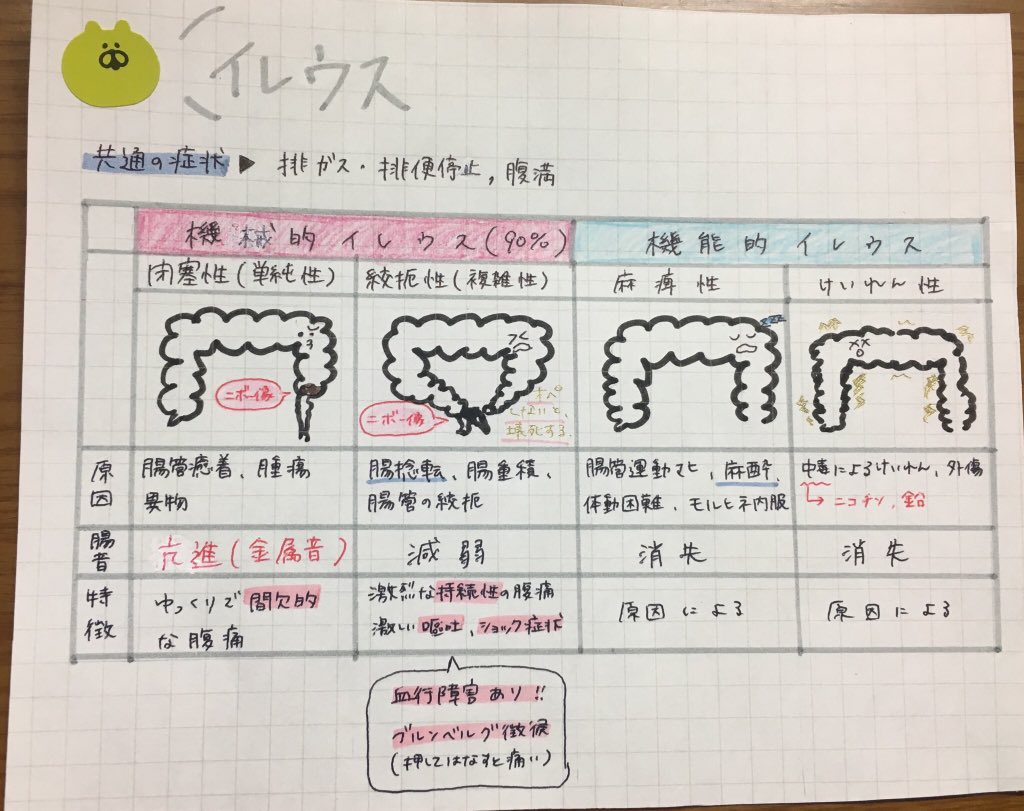 イレウス
共通の症状 ▶ 排ガス・排便停止, 腹満
機械的イレウス(90%) 機能的イレウス
閉塞性(単純性) 絞扼性(複雑性) 麻痺性 けいれん性
zzz
ニボー像
ニボー像
オペ
しないと、
壊死する.
原因
腸管癒着、腫瘍
異物
腸捻転、腸重積、
腸管の絞扼
腸管運動マヒ、麻酔、
体動困難、モルヒネ内服
中毒によるけいれん、外傷
→ニコチン、鉛
腸音 亢進(金属音) 減弱 消失 消失
特徴
ゆっくりで間欠的
な腹痛
激烈な持続性の腹痛
激しい嘔吐、ショック症状
原因による
原因による
血行障害あり!!
ブルンベルグ徴候
(押してはなすと痛い)